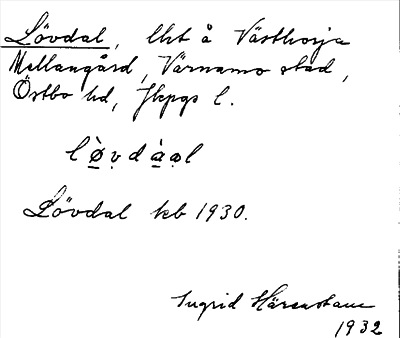 Lövdal, lht å Västhorja
Mellangård, Värnamo stad,
Östbo hd, Jkpgs l.
lö̀vdàal
Lövdal kb 1930.
Ingrid
1932